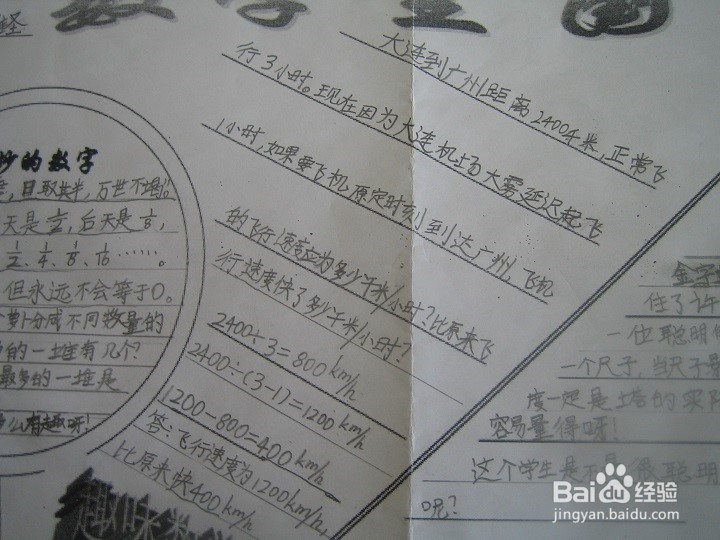 数学王国
大连到广州距离2400千米,正常飞
行3小时。现在因为大连机场大雾延迟起飞
1小时,如果要飞机原定时刻到达广州,飞机
的飞行速度应为多少千米/小时?比原来飞
行速度快了多少千米/小时?
2400÷3=800km/h
2400÷(3-1)=1200km/h
1200-800=400km/h
答:飞行速度为1200km/h,
比原来快400km/h
妙的数字
取其半,万世不竭。
天是½,后天是⅛,
½、¼、⅛、1/16……。
但永远不会等于0。
萝卜分成不同数量的
的一堆有几个?
最多的一堆是
多么有趣呀!
趣味数学
金字
住了许
一位聪明
一个尺子,当尺子
度一起是塔的实际
容易量得呀!
这个学生是不是很聪明
呢?
Baidu经验
jingyan.baidu.com